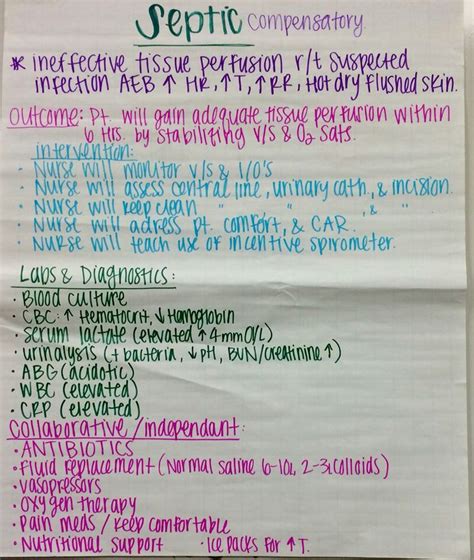 Septic compensatory
* ineffective tissue perfusion r/t suspected
infection AEB ↑ HR, ↑T, ↑RR, Hot dry flushed skin.
Outcome: Pt. will gain adequate tissue perfusion within
6 Hrs. by stabilizing V/S & O2 Sats.
intervention:
• Nurse will monitor V/S & I/O's
• Nurse will assess central line, urinary cath, & incision.
• Nurse will keep clean " " , & "
• Nurse will adress pt. comfort, & CAR.
• Nurse will teach use of incentive spirometer.
Labs & Diagnostics:
• Blood culture
• CBC: ↑ Hematocrit, ↓ Hamoglobin
• Serum lactate (elevated ↑ 4mmol/L)
• urinalysis (+ bacteria, ↓ pH, BUN/creatinine ↑)
• ABG (acidotic)
• WBC (elevated)
• CRP (elevated)
Collaborative/independant:
• ANTIBIOTICS
• Fluid replacement (Normal saline 6-10L, 2-3L colloids)
• vasopressors
• oxygen therapy
• Pain meds / keep comfortable
• Nutritional support • Ice packs for ↑T.